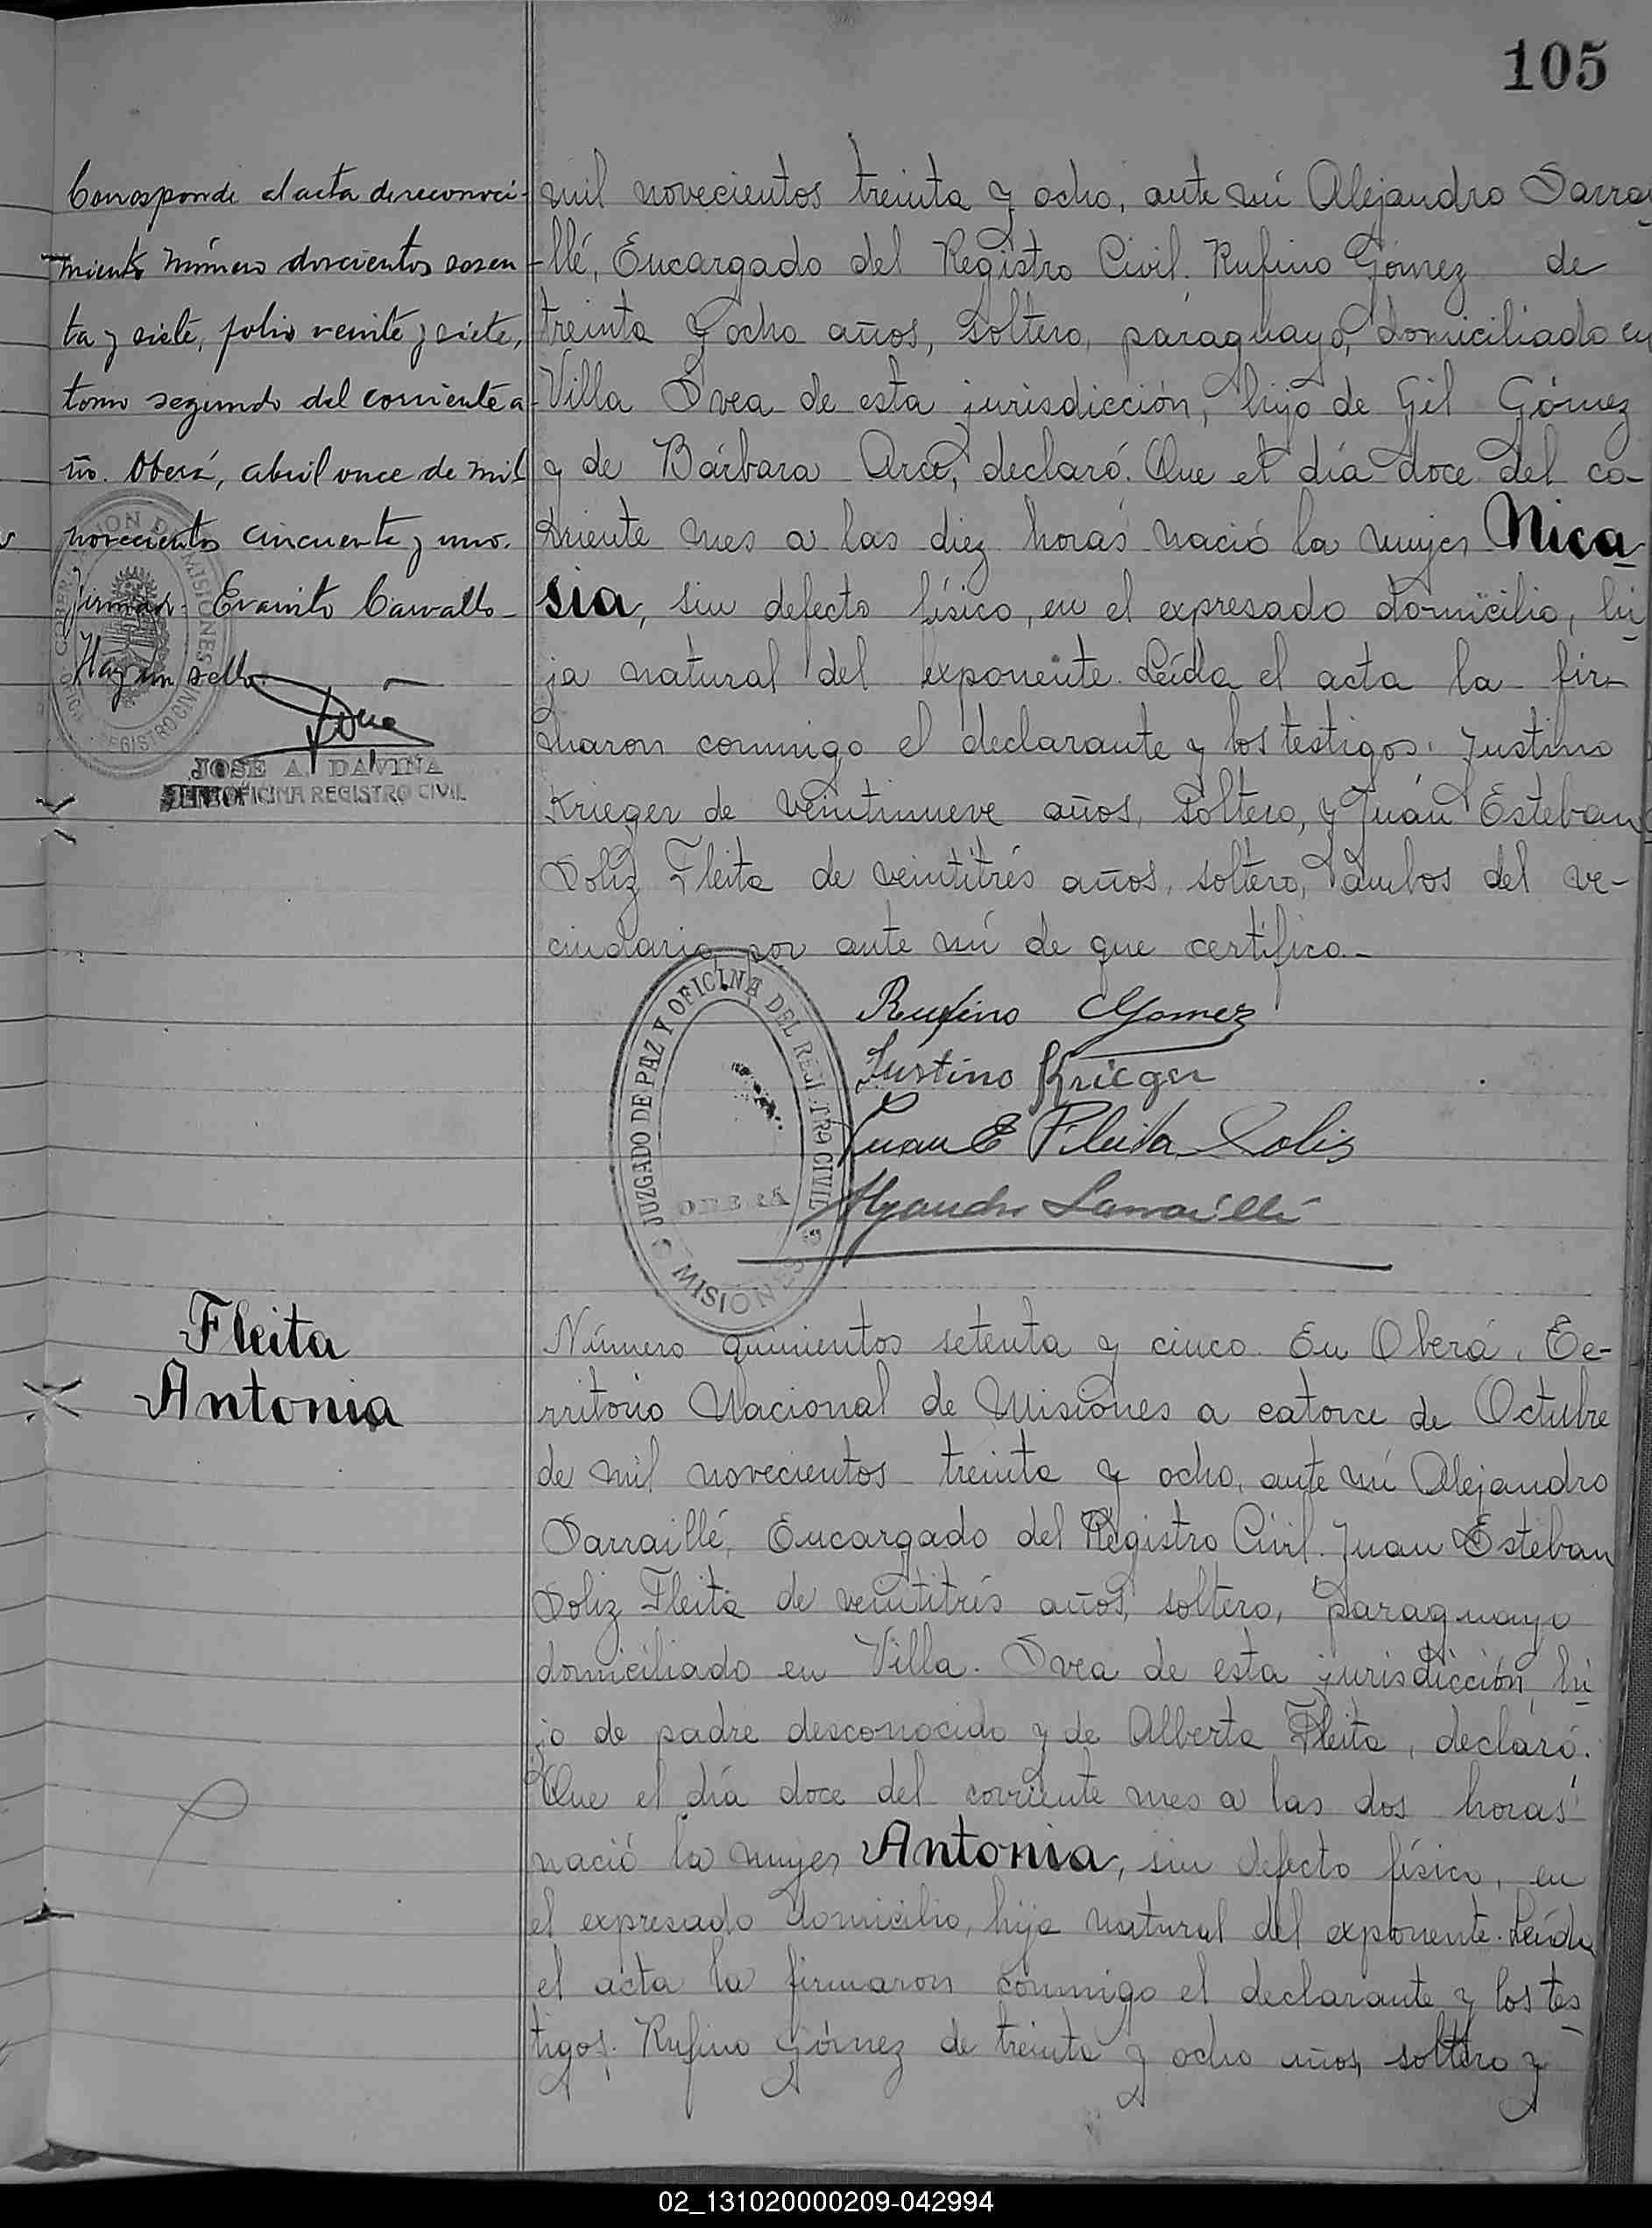 105
Corresponde al acta de reconoci-
miento número doscientos sesen-
ta y siete, folio veinte y siete,
tomo segundo del corriente a-
ño. Oberá, abril once de mil
novecientos cincuenta y uno.
firmado. Evaristo Carvallo-
Hay un sello.
JOSE A. DAVIÑA
JEFE OFICINA REGISTRO CIVIL
mil novecientos treinta y ocho, ante mí Alejandro Sarrai
llé, Encargado del Registro Civil. Rufino Gómez de
treinta y ocho años, soltero, paraguayo, domiciliado en
Villa Svea de esta jurisdicción, hijo de Gil Gómez
y de Bárbara Arce, declaró. Que el día doce del co-
rriente mes a las diez horas nació la mujer Nica-
sia, sin defecto físico, en el expresado domicilio, hi
ja natural del exponente. Leída el acta la fir-
maron conmigo el declarante y los testigos. Justino
Krieger de veintinueve años, soltero, y Juan Esteban
Soliz Fleita de veintitrés años, soltero, ambos del ve-
cindario por ante mí de que certifico.-
JUZGADO DE PAZ Y OFICINA DEL REGISTRO CIVIL
OBERÁ
MISIONES
Rufino Gomez
Justino Krieger
Juan E Fleita Solis
Alejandro Sarraillé
Fleita
Antonia
Número quinientos setenta y cinco. En Oberá, Te-
rritorio Nacional de Misiones a catorce de Octubre
de mil novecientos treinta y ocho, ante mí Alejandro
Sarraillé, Encargado del Registro Civil. Juan Esteban
Soliz Fleita de veintitrés años, soltero, paraguayo
domiciliado en Villa. Svea de esta jurisdicción, hi
jo de padre desconocido y de Alberta Fleita, declaró.
Que el día doce del corriente mes a las dos horas
nació la mujer Antonia, sin defecto físico, en
el expresado domicilio, hija natural del exponente. Leída
el acta la firmaron conmigo el declarante y los tes
tigos. Rufino Gómez de treinta y ocho años, soltero y
02_131020000209-042994